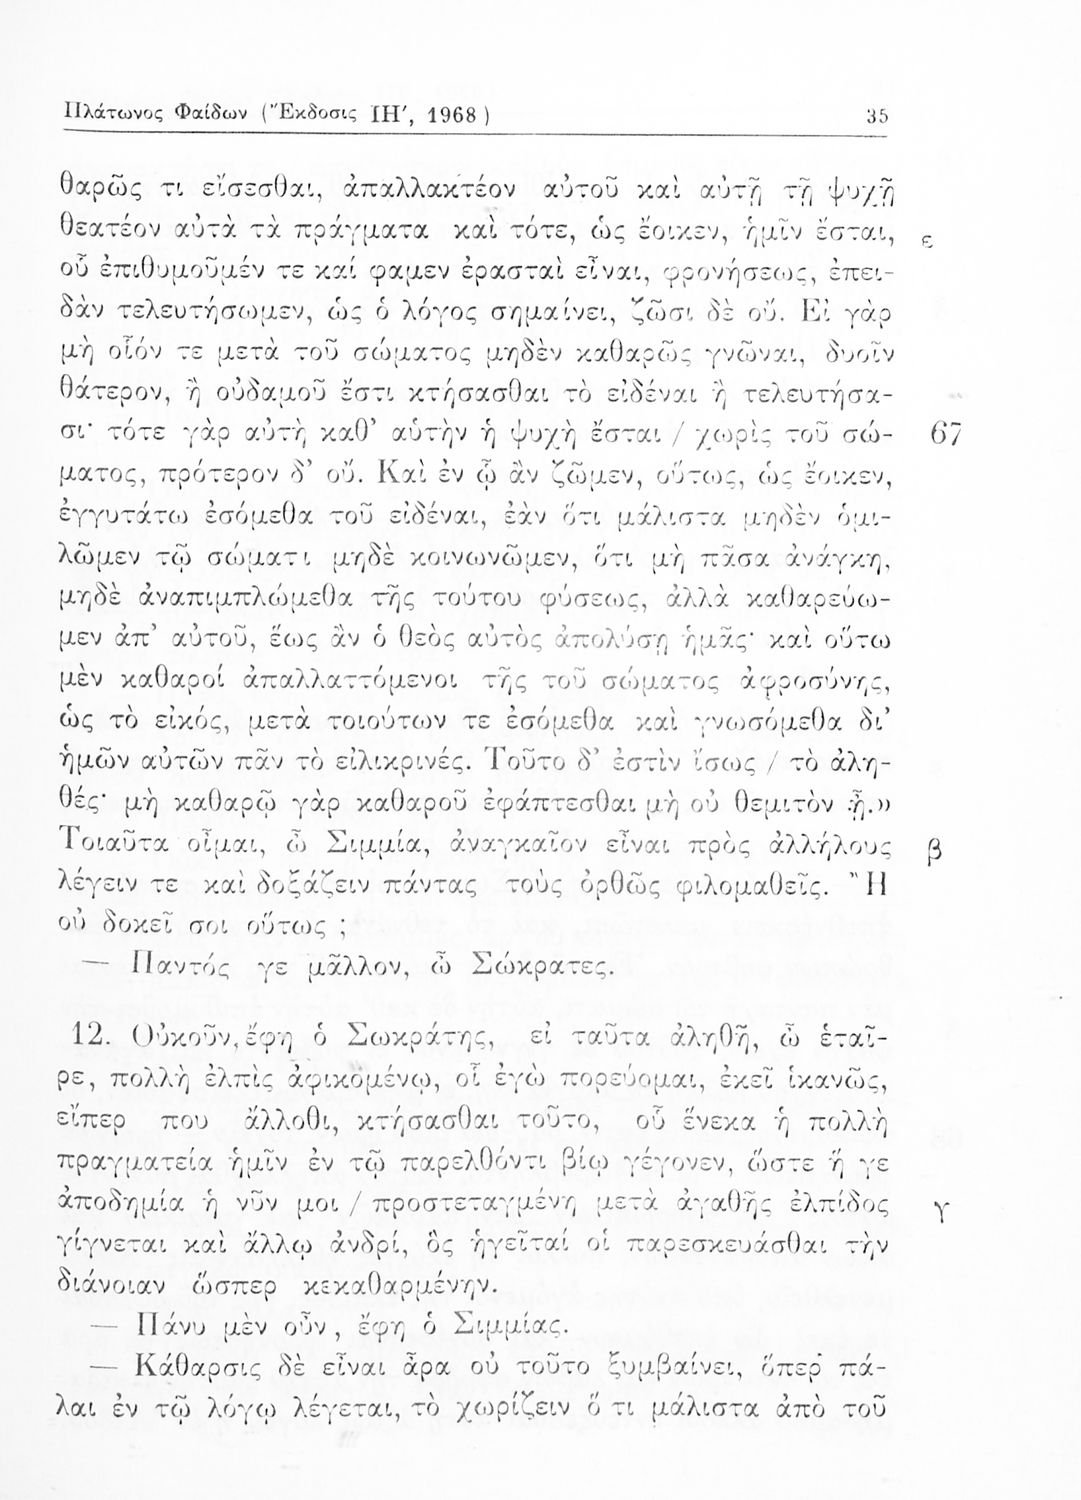 Πλάτωνος Φαίδων (Ἔκδοσις ΙΗ′, 1968) 35
θαρῶς τι εἴσεσθαι, ἀπαλλακτέον αὐτοῦ καὶ αὐτῇ τῇ ψυχῇ
θεατέον αὐτὰ τὰ πράγματα καὶ τότε, ὡς ἔοικεν, ἡμῖν ἔσται, ε
οὗ ἐπιθυμοῦμέν τε καί φαμεν ἐρασταὶ εἶναι, φρονήσεως, ἐπει-
δὰν τελευτήσωμεν, ὡς ὁ λόγος σημαίνει, ζῶσι δὲ οὔ. Εἰ γὰρ
μὴ οἷόν τε μετὰ τοῦ σώματος μηδὲν καθαρῶς γνῶναι, δυοῖν
θάτερον, ἢ οὐδαμοῦ ἔστι κτήσασθαι τὸ εἰδέναι ἢ τελευτήσα-
σι· τότε γὰρ αὐτὴ καθ’ αὑτὴν ἡ ψυχὴ ἔσται / χωρὶς τοῦ σώ- 67
ματος, πρότερον δ’ οὔ. Καὶ ἐν ᾧ ἂν ζῶμεν, οὕτως, ὡς ἔοικεν,
ἐγγυτάτω ἐσόμεθα τοῦ εἰδέναι, ἐὰν ὅτι μάλιστα μηδὲν ὁμι-
λῶμεν τῷ σώματι μηδὲ κοινωνῶμεν, ὅτι μὴ πᾶσα ἀνάγκη,
μηδὲ ἀναπιμπλώμεθα τῆς τούτου φύσεως, ἀλλὰ καθαρεύω-
μεν ἀπ’ αὐτοῦ, ἕως ἂν ὁ θεὸς αὐτὸς ἀπολύσῃ ἡμᾶς· καὶ οὕτω
μὲν καθαροί ἀπαλλαττόμενοι τῆς τοῦ σώματος ἀφροσύνης,
ὡς τὸ εἰκός, μετὰ τοιούτων τε ἐσόμεθα καὶ γνωσόμεθα δι’
ἡμῶν αὐτῶν πᾶν τὸ εἰλικρινές. Τοῦτο δ’ ἐστὶν ἴσως / τὸ ἀλη-
θές· μὴ καθαρῷ γὰρ καθαροῦ ἐφάπτεσθαι μὴ οὐ θεμιτὸν ᾖ.»
Τοιαῦτα οἶμαι, ὦ Σιμμία, ἀναγκαῖον εἶναι πρὸς ἀλλήλους β
λέγειν τε καὶ δοξάζειν πάντας τοὺς ὀρθῶς φιλομαθεῖς. Ἢ
οὐ δοκεῖ σοι οὕτως ;
— Παντός γε μᾶλλον, ὦ Σώκρατες.
12. Οὐκοῦν, ἔφη ὁ Σωκράτης, εἰ ταῦτα ἀληθῆ, ὦ ἑταῖ-
ρε, πολλὴ ἐλπὶς ἀφικομένῳ, οἷ ἐγὼ πορεύομαι, ἐκεῖ ἱκανῶς,
εἴπερ που ἄλλοθι, κτήσασθαι τοῦτο, οὗ ἕνεκα ἡ πολλὴ
πραγματεία ἡμῖν ἐν τῷ παρελθόντι βίῳ γέγονεν, ὥστε ἥ γε
ἀποδημία ἡ νῦν μοι / προστεταγμένη μετὰ ἀγαθῆς ἐλπίδος γ
γίγνεται καὶ ἄλλῳ ἀνδρί, ὃς ἡγεῖταί οἱ παρεσκευάσθαι τὴν
διάνοιαν ὥσπερ κεκαθαρμένην.
— Πάνυ μὲν οὖν, ἔφη ὁ Σιμμίας.
— Κάθαρσις δὲ εἶναι ἆρα οὐ τοῦτο ξυμβαίνει, ὅπερ πά-
λαι ἐν τῷ λόγῳ λέγεται, τὸ χωρίζειν ὅ τι μάλιστα ἀπὸ τοῦ